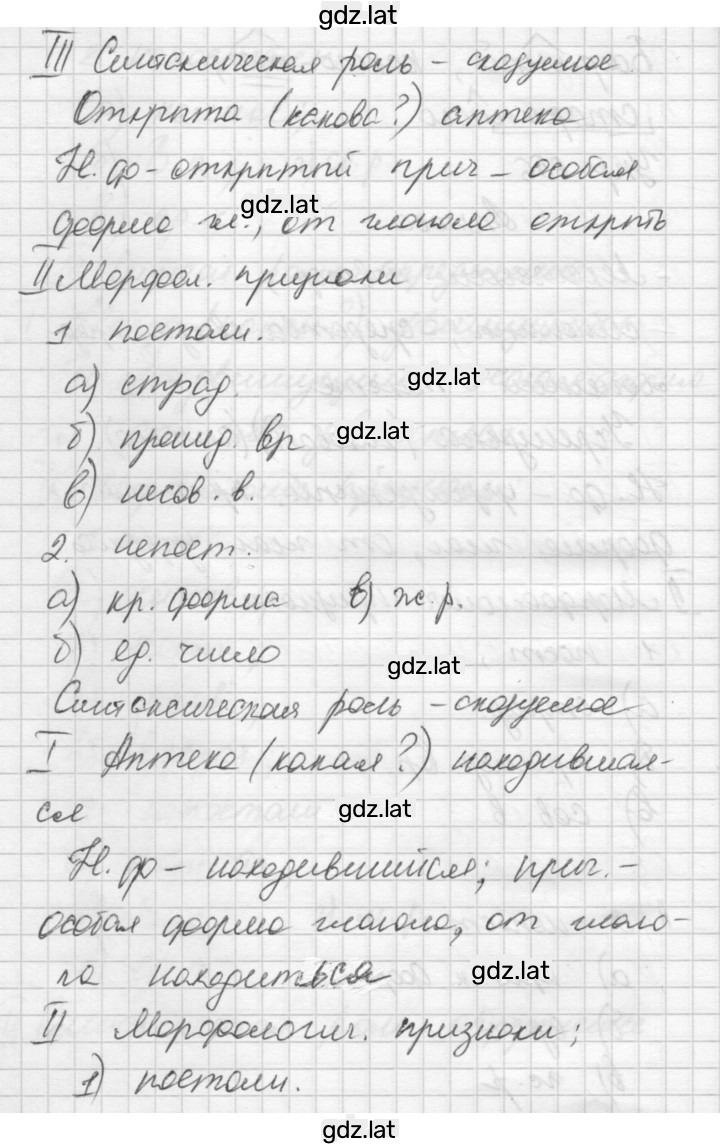 gdz.lat
III Синтаксическая роль – сказуемое
Открыта (какова?) аптека
Н.ф – открытый прич – особая
gdz.lat
форма гл., от глагола открыть
II Морфол. признаки
1 постоян.
а) страд.
gdz.lat
б) прошед. вр
gdz.lat
в) несов. в.
2. непост.
а) кр. форма в) ж.р.
б) ед. число
gdz.lat
Синтаксическая роль – сказуемое
I Аптека (какая?) находившая-
ся
gdz.lat
Н.ф – находившийся; прич. –
особая форма глагола, от глаго-
ла находиться
gdz.lat
II Морфологич. признаки;
1) постоян.
gdz.lat